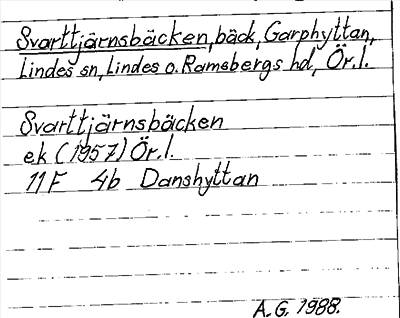 Svarttjärnsbäcken, bäck, Garphyttan,
Lindes sn, Lindes o. Ramsbergs hd, Ör. l.
Svarttjärnsbäcken
ek (1957) Ör. l.
11F 4b Danshyttan
A. G. 1988.